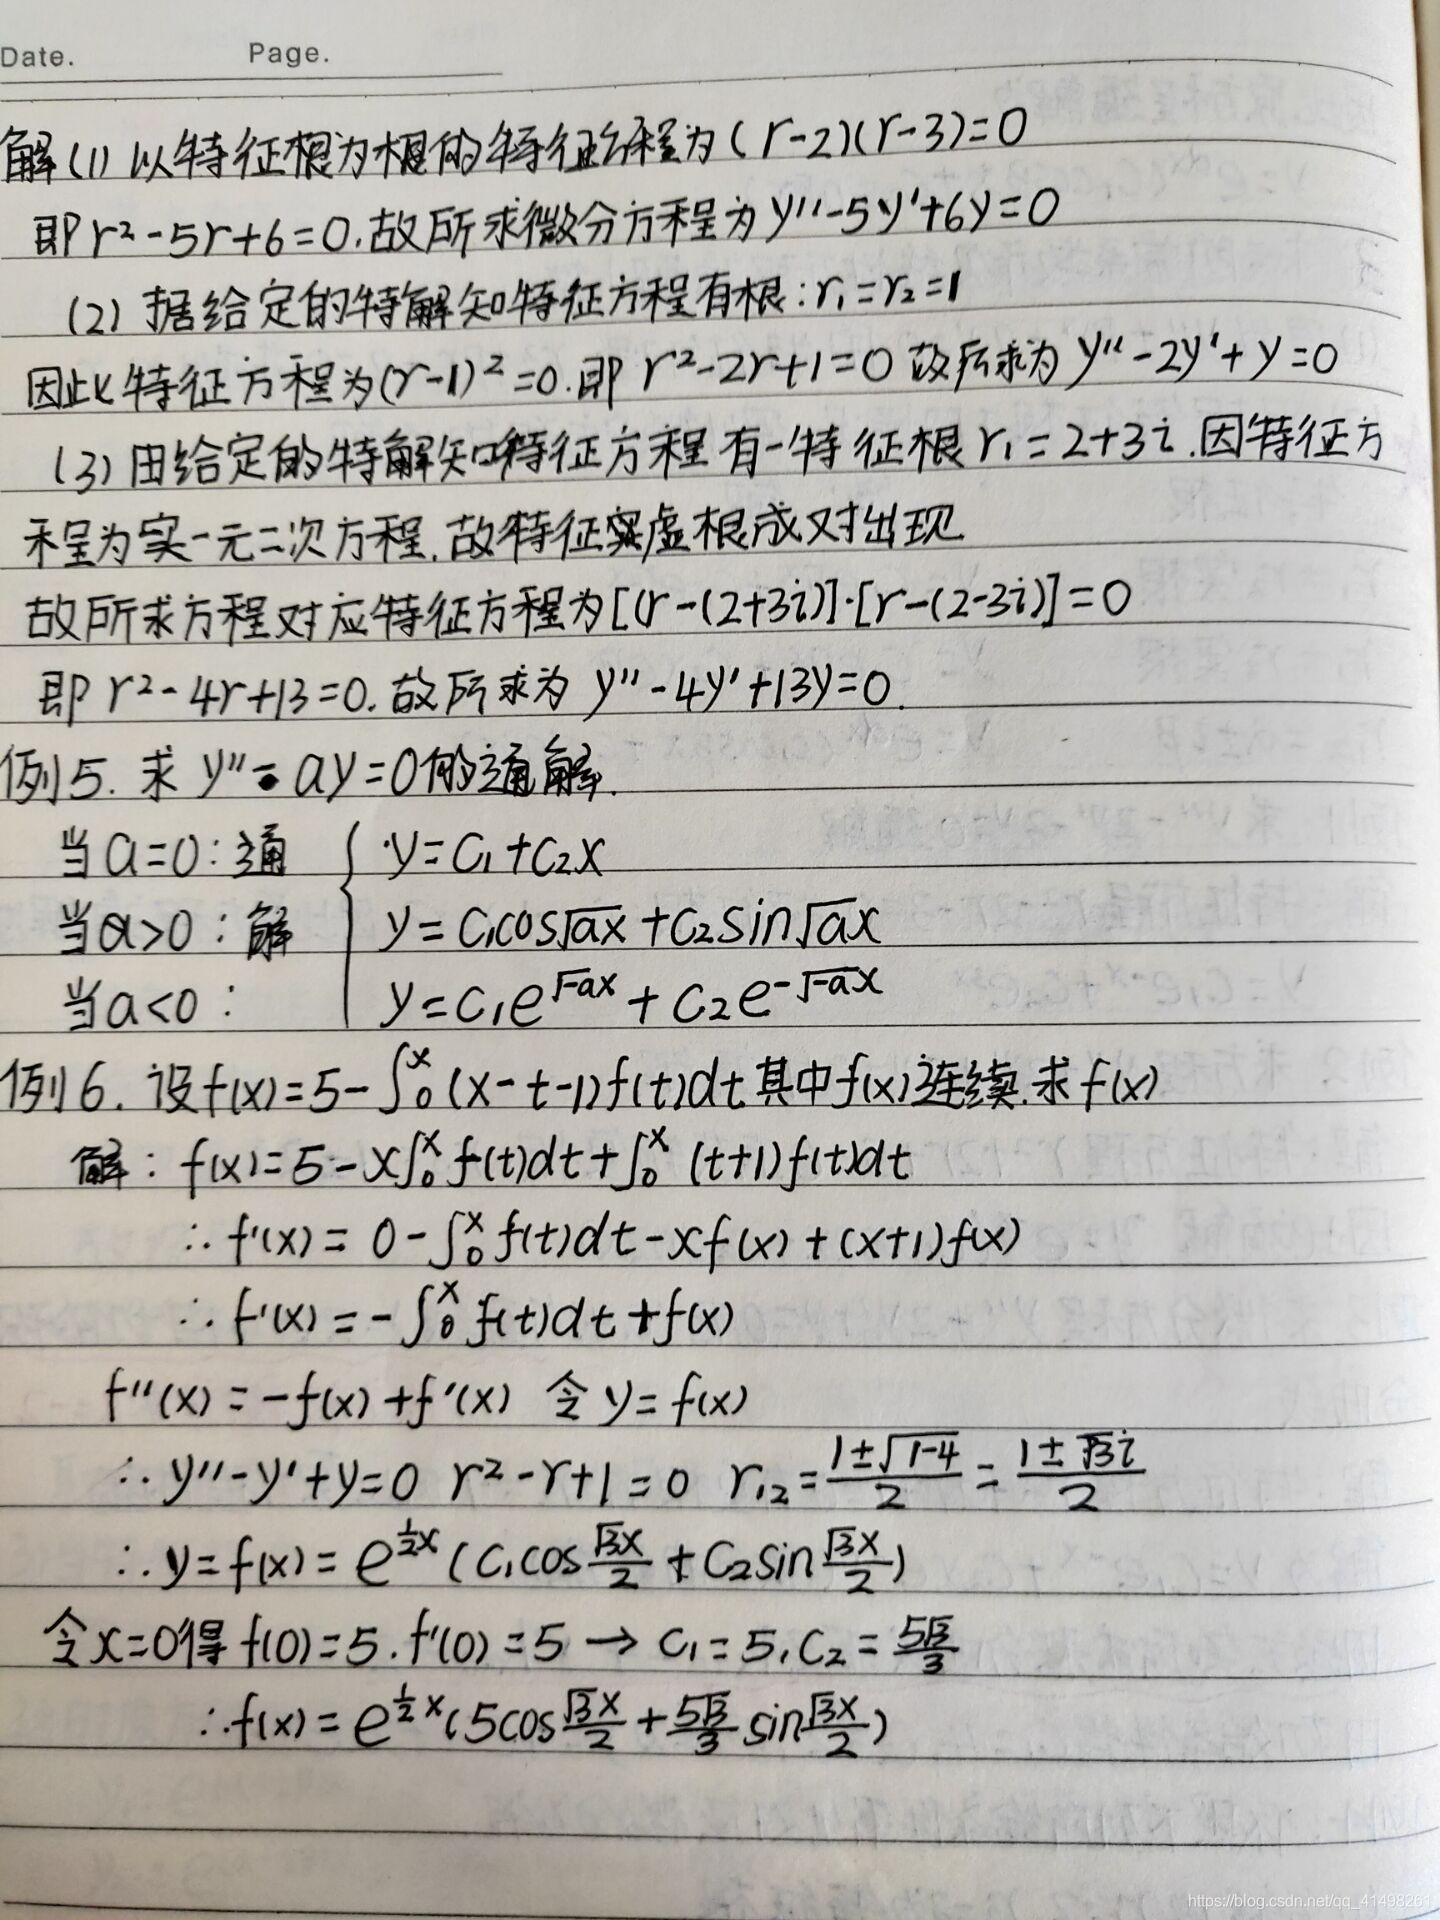 Date. Page.
解(1)以特征根为根的特征方程为(r-2)(r-3)=0
即r²-5r+6=0.故所求微分方程为y''-5y'+6y=0
(2)据给定的特解知特征方程有根:r₁=r₂=1
因此特征方程为(r-1)²=0.即 r²-2r+1=0 故所求为 y''-2y'+y=0
(3)由给定的特解知特征方程有一特征根 r₁=2+3i.因特征方
程为实一元二次方程.故特征虚根成对出现
故所求方程对应特征方程为[(r-(2+3i)]·[r-(2-3i)]=0
即 r²-4r+13=0.故所求为 y''-4y'+13y=0.
例5.求 y''- ay=0的通解.
当a=0:通 { y=C₁+C₂x
当a>0:解 y=C₁cos√ax+C₂sin√ax
当a<0: y=C₁e^√-ax + C₂e^-√-ax
例6.设f(x)=5-∫₀ˣ(x-t-1)f(t)dt其中f(x)连续.求f(x)
解:f(x)=5-x∫₀ˣf(t)dt+∫₀ˣ(t+1)f(t)dt
∴f'(x)=0-∫₀ˣf(t)dt-xf(x)+(x+1)f(x)
∴f'(x)=-∫₀ˣf(t)dt+f(x)
f''(x)=-f(x)+f'(x) 令y=f(x)
∴y''-y'+y=0 r²-r+1=0 r₁₂=(1±√1-4)/2=(1±√3i)/2
∴y=f(x)=e^½x(C₁cos √3x/2+C₂sin √3x/2)
令x=0得f(0)=5.f'(0)=5→C₁=5,C₂=5√3/3
∴f(x)=e^½x(5cos √3x/2+5√3/3 sin √3x/2)
https://blog.csdn.net/qq_41498261